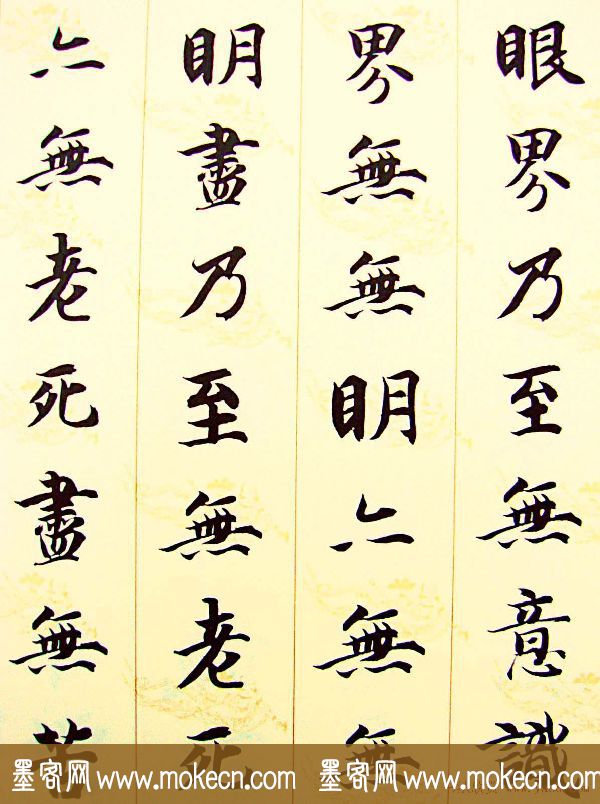 眼界乃至無意識
界無無明亦無無
明盡乃至無老死
亦無老死盡無苦
墨客网 www.mokecn.com 墨客网 www.mokecn.com